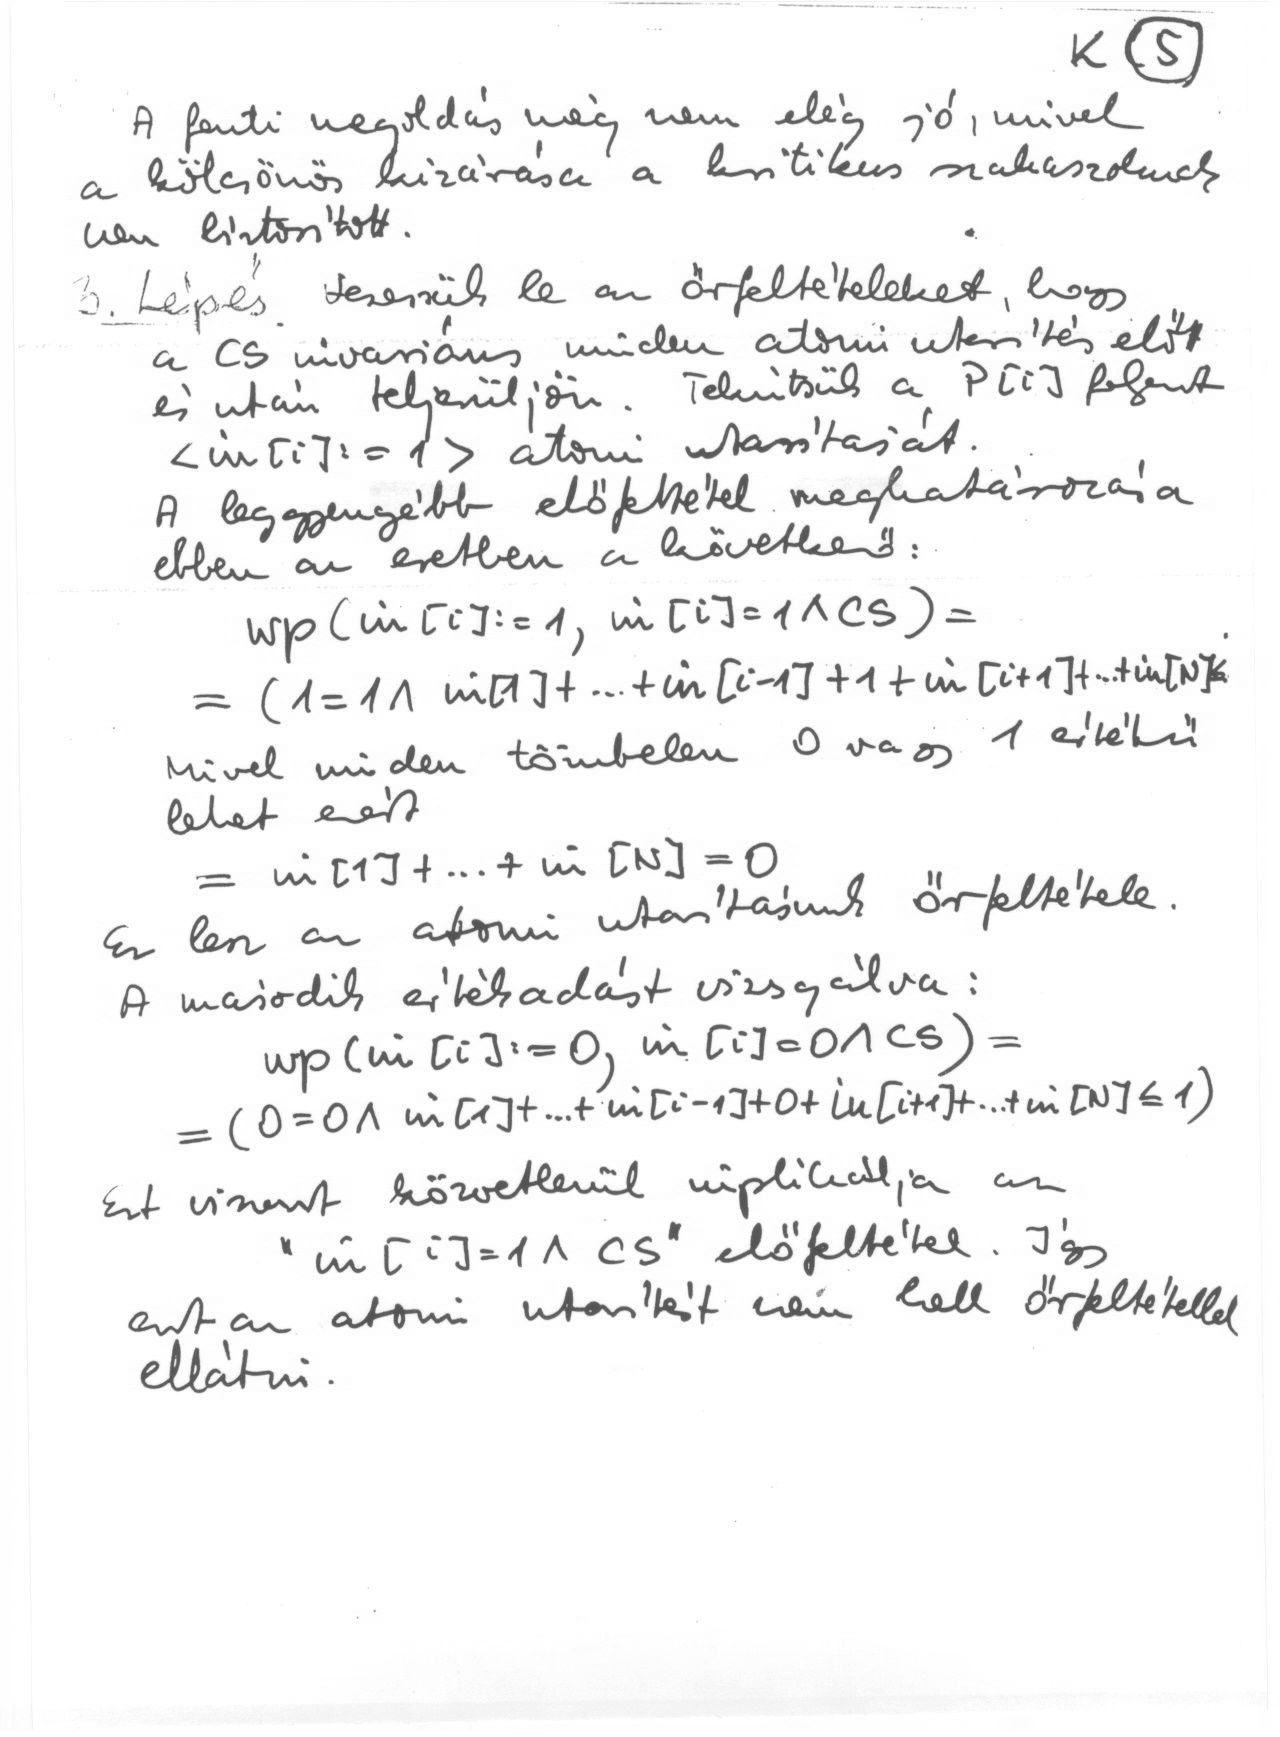 K 5
A fenti megoldás még nem elég jó, mivel
a kölcsönös kizárása a kritikus szakaszoknak
nem biztosított.
3. Lépés. Vezessük be az őrfeltételeket, hogy
a CS invariáns minden atomi utasítás előtt
és után teljesüljön. Tekintsük a P[i] folyamat
<in[i]:=1> atomi utasítását.
A leggyengébb előfeltétel meghatározása
ebben az esetben a következő:
wp(in[i]:=1, in[i]=1∧CS)=
=(1=1∧ in[1]+...+in[i-1]+1+in[i+1]+...+in[N]≤
Mivel minden tömbelem 0 vagy 1 értékű
lehet ezért
= in[1]+...+in[N]=0
Ez lesz az atomi utasításunk őrfeltétele.
A második értékadást vizsgálva:
wp(in[i]:=0, in[i]=0∧CS)=
=(0=0∧ in[1]+...+in[i-1]+0+in[i+1]+...+in[N]≤1)
Ezt viszont közvetlenül implikálja az
"in[i]=1∧ CS" előfeltétel. Így
ezt az atomi utasítást nem kell őrfeltétellel
ellátni.